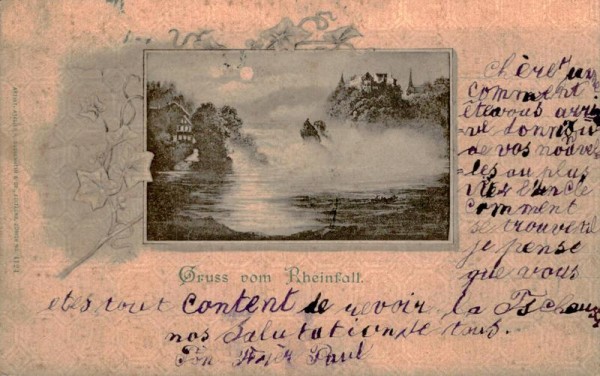 Gruss vom Rheinfall.
chère
comment
êtevous arri
=vé donnéz
=de vos nouve
=les au plus
comment
se trouve
je pense
que vous
etes tout content de revoir la Tschau
nos Salutation de tous.
Ton Frèr Paul